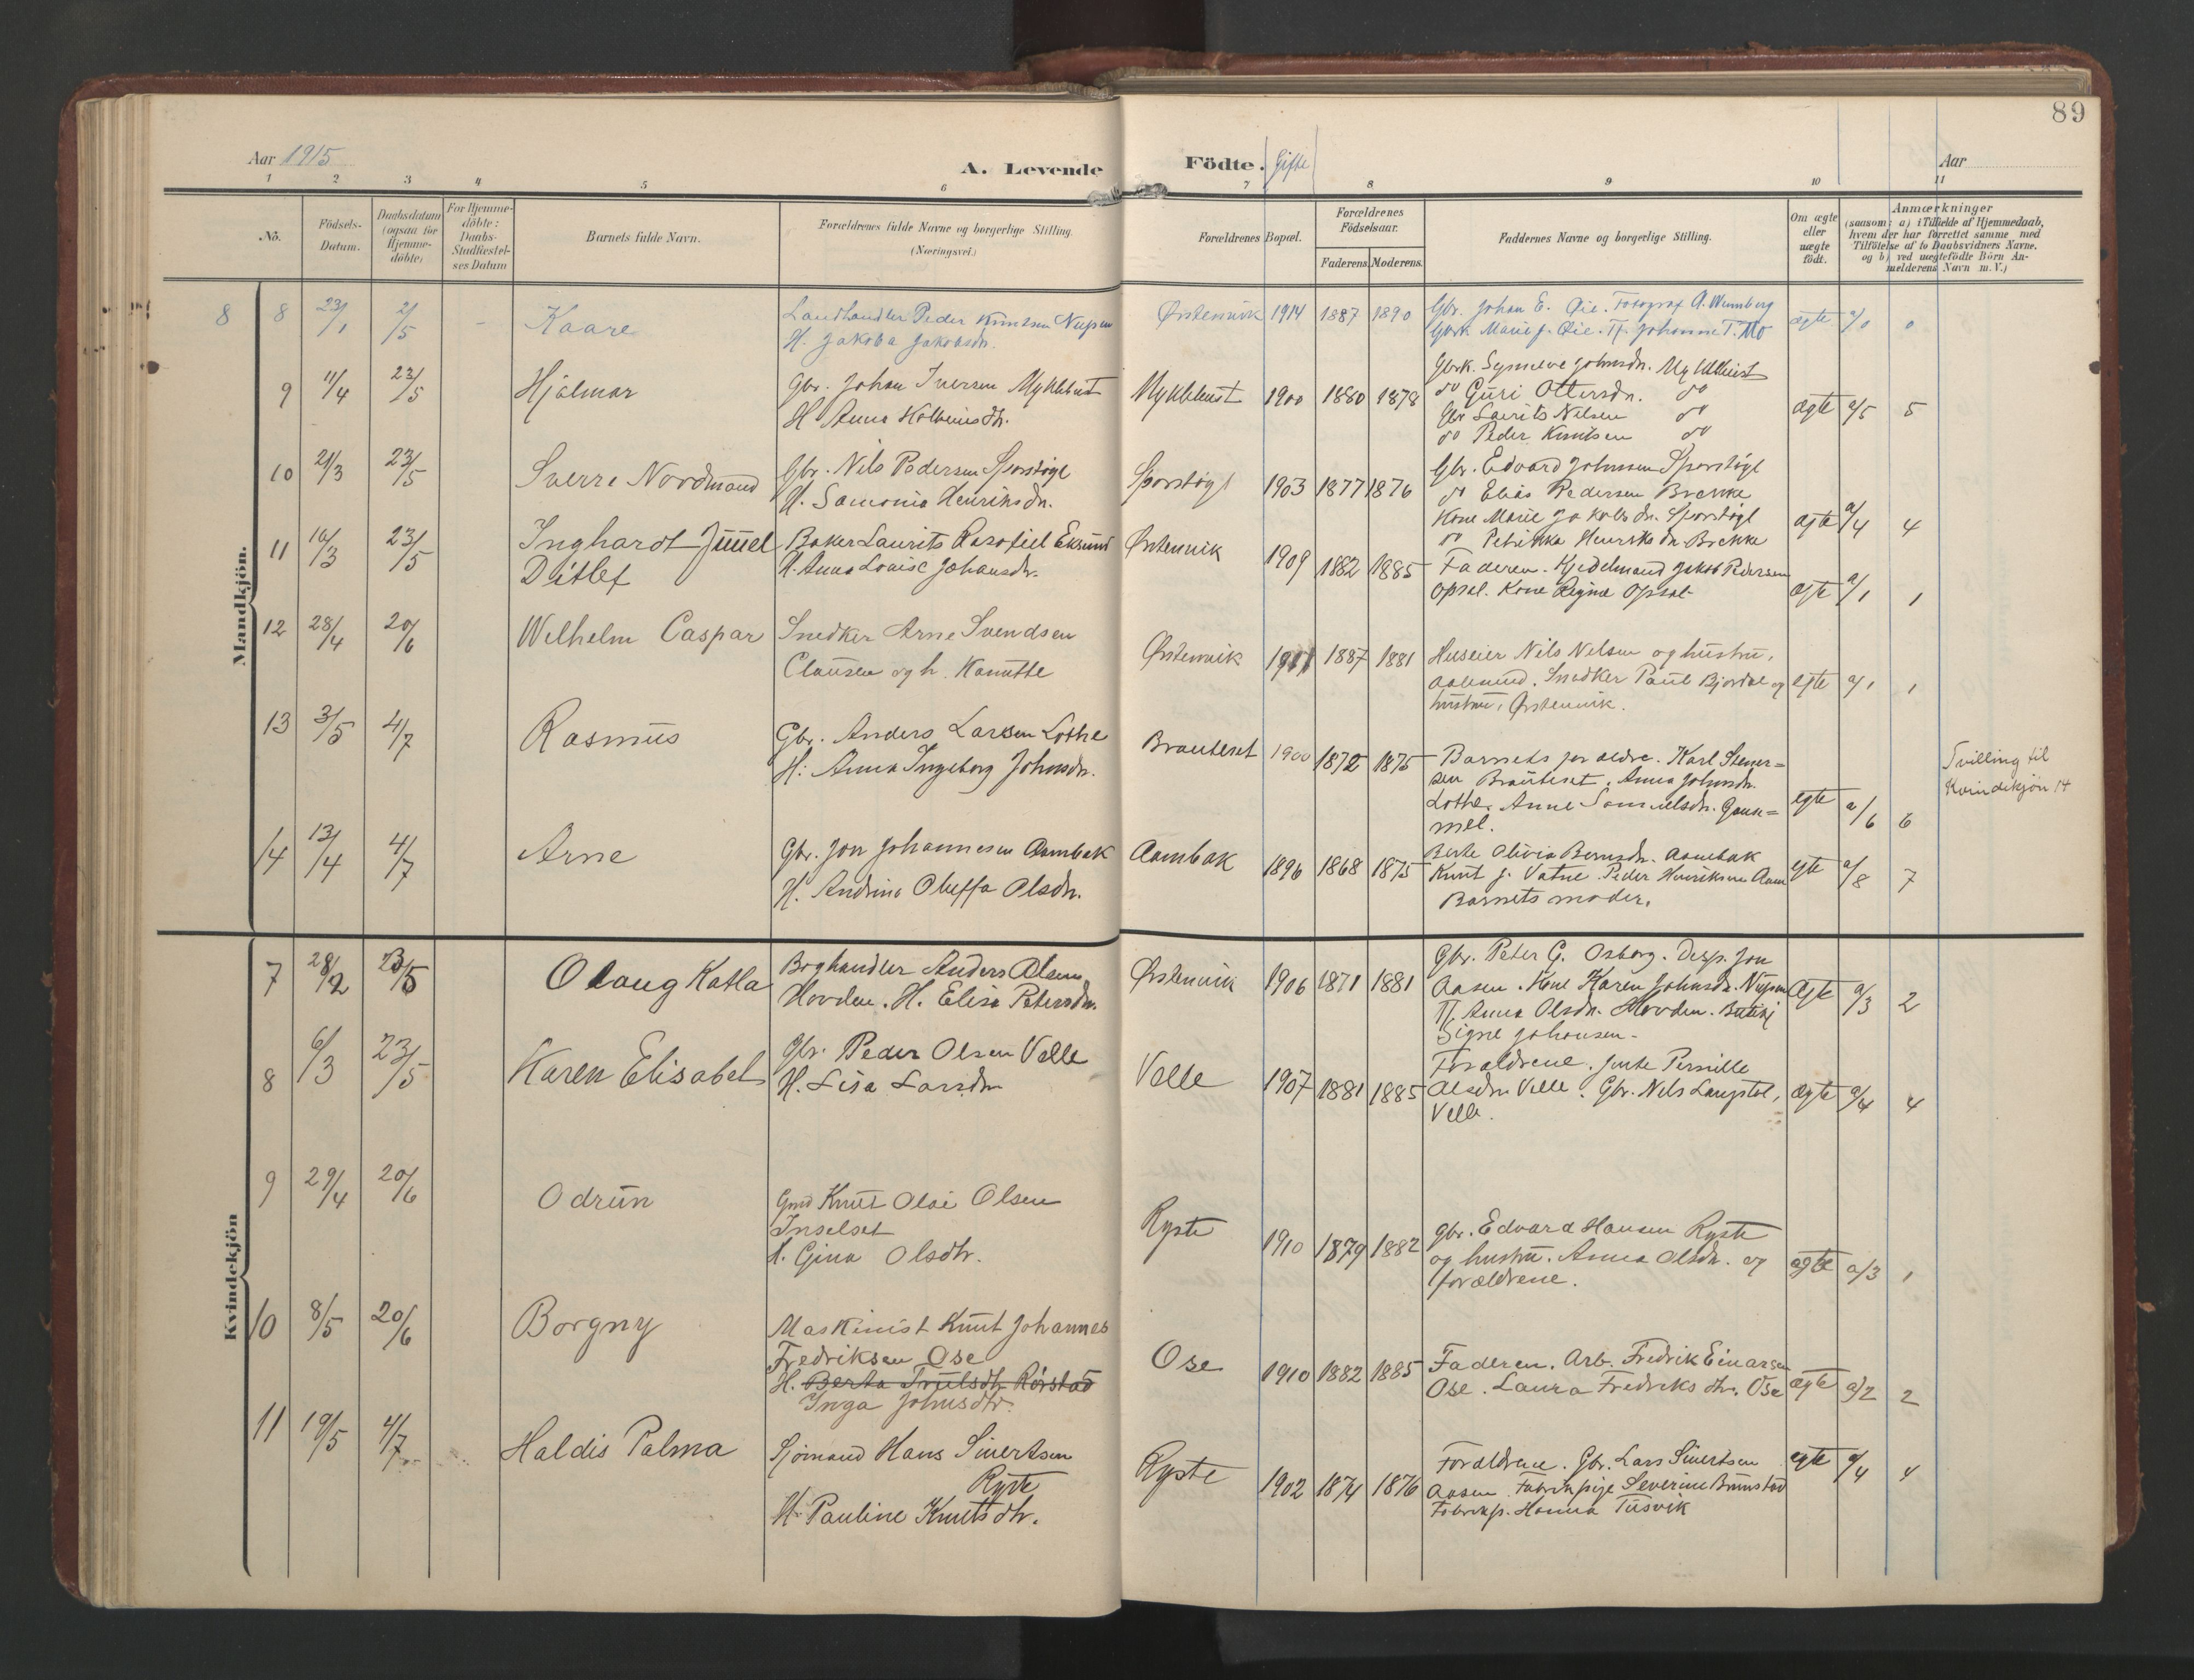 89
Aar 1915
A. Levende Födte. Gifte
Aar
1 2 3 4 5 6 7 8 9 10 11
No.
Födsels-
Datum.
Daabsdatum
(ogsaa for
Hjemme-
döbte)
For Hjemme-
döbte:
Daabs-
Stadfæstel-
ses Datum
Barnets fulde Navn.
Forældrenes fulde Navne og borgerlige Stilling.
(Næringsvei.)
Forældrenes Bopæl.
Forældrenes
Födselsaar.
Faderens. Moderens.
Faddernes Navne og borgerlige Stilling.
Om ægte
eller
uægte
födt.
Anmærkninger
(saasom: a) i Tilfælde af Hjemmedaab,
hvem der har forrettet samme med
Tilföielse af to Daabsvidners Navne.
og b) ved uægtefödte Börn An-
melderens Navn m. V.)
Mandkjön.
8 8 23/1 2/5 - Kaare
Landhandler Peder Knutsen Nupen
H. Jakoba Jakobsdr.
Ørstenvik 1914 1887 1890
Gbr. Johan E. Øie. Fotograf A. Wumberg
Gbrk. Marie J. Øie. Tj. Johanne T. Mo
ægte a/0 0
9 11/4 23/5 Hjalmar
Gbr. Johan Iversen Myklebust
H. Anna Kolbeinsdtr.
Myklebust 1900 1880 1878
Gbrk. Synneve Johnsdn. Myklebust
do Guri Ottersdn. do
Gbr Laurits Nilsen do
do Peder Knutsen do
ægte a/5 5
10 21/3 23/5 Sverre Nordmand
Gbr. Nils Pedersen Sporstøyl
H. Samonia Henriksdn.
Sporstøyl 1903 1877 1876
Gbr. Edvard Johnsen Sporstøyl
do Elias Pedersen Brekke
Kone Marie Jakobsdn. Sporstøyl
do Petrikka Henriksdn. Brekke
ægte a/4 4
11 16/3 23/5 Inghardt Juuel
Ditlef
Baker Laurits Rasofiel Eksund
H. Anna Louise Johansdr.
Ørstenvik 1909 1882 1885
Faderen. Kjedelmand Jakob Pedersen
Opsal. Kone Regine Opsal
ægte a/1 1
12 28/4 20/6 Wilhelm Caspar
Snedker Arne Svendsen
Clausen og h. Kanutte
Ørstenvik 1911 1887 1881
Huseier Nils Nilsen og hustru,
Aalesund. Snedker Paul Bjordal og
hustru, Ørstenvik.
egte a/1 1
13 3/5 4/7 Rasmus
Gbr. Anders Larsen Lothe
H: Anna Ingeborg Johnsdr.
Brauteset 1900 1872 1875
Barnets forældre. Karl Stener=
sen Brauteset. Anna Johnsdn.
Lothe. Anne Samuelsdn. Ganu=
mel.
egte a/6 6
Tvilling til
Kvindekjön 14
14 13/4 4/7 Arne
Gbr. Jon Johannesen Aambak
H. Andrina Oluffa Olsdn.
Aambak 1896 1868 1875
Berte Olivia Bernsdn. Aambak
Knut J. Vatne. Peder Henriksen Aam
Barnets moder.
egte a/8 7
Kvindekjön
7 28/2 23/5 Olaug Katla
Boghandler Anders Olsen
Hovden. H. Elise Petersdn.
Ørstenvik 1906 1871 1881
Gbr. Peter G. Osborg. Desp. Jon
Aasen. Kone Karen Johnsdn. Nupen
Tj. Anna Olsdn. Hovden. Butikj
Signe Johansen.
Ægte a/3 2
8 6/3 23/5 Karen Elisabet
Gbr. Peder Olsen Velle
H. Lisa Larsdn
Velle 1907 1881 1885
Foraldrene. Jente Pernille
Olsdn. Velle. Gbr. Nils Langstøl,
Velle.
ægte a/4 4
9 29/4 20/6 Odrun
Gmd Knut Olai Olsen
Inselset
H. Gina Olsdtr.
Ryste 1910 1879 1882
Gbr. Edvard Hansen Ryste
og hustru. Anna Olsdn. og
forældrene.
ægte a/3 1
10 8/5 20/6 Borgny
Maskinist Knut Johannes
Fredriksen Ose
H. Berta Trulsdtr. Rörstad
Inga Johnsdtr.
Ose 1910 1882 1885
Faderen. Arb. Fredrik Einarsen
Ose. Laura Fredriksdtr. Ose
ægte a/2 2
11 19/5 4/7 Haldis Palma
Sjömand Hans Sivertsen
Ryste
H. Pauline Knutsdtr.
Ryste 1902 1874 1876
Foraldrene. Gbr. Lars Sivertsen
Aasen. Fabrikpige Severine Brunstad
Fabrikp. Hanna Tusvik
egte a/4 4